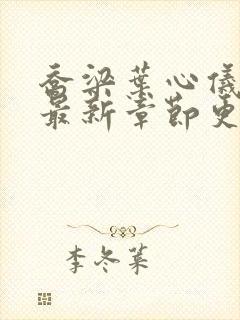 乔梁叶心仪
最新章节更
李冬叶